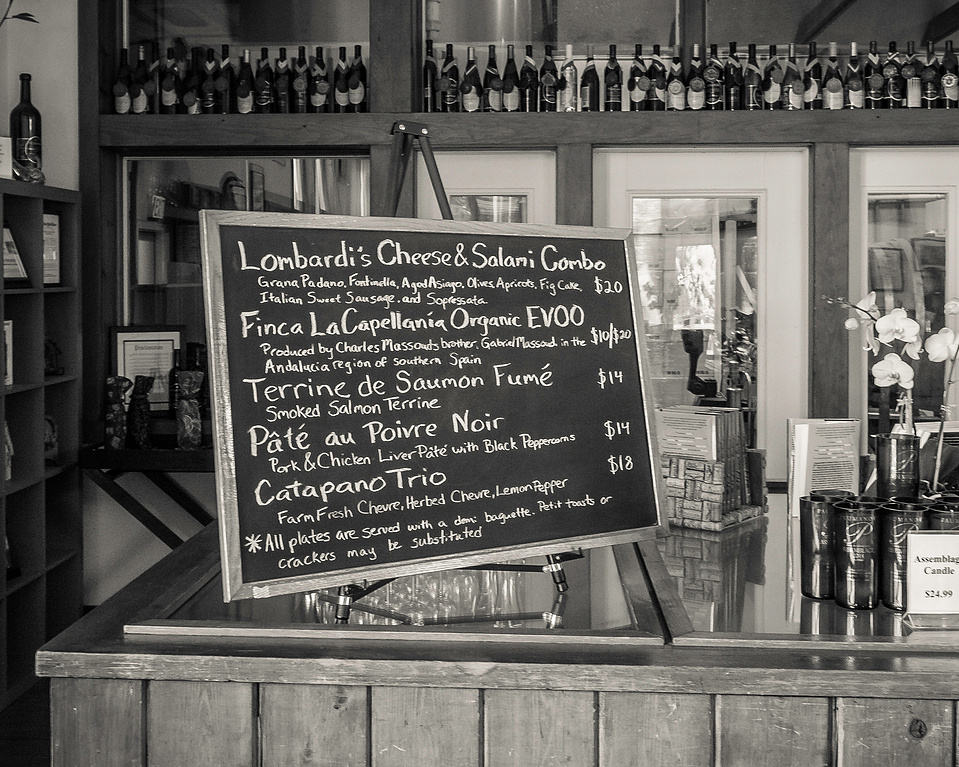 Lombardi's Cheese & Salami Combo
Grana Padano, Fontinella, Aged Asiago, Olives, Apricots, Fig Cake, $20
Italian Sweet Sausage. and Sopressata.
Finca LaCapellanía Organic EVOO
Produced by Charles Massoud's brother, Gabriel Massoud. in the $10/$20
Andalucia region of southern Spain
Terrine de Saumon Fumé $14
Smoked Salmon Terrine
Pâté au Poivre Noir $14
Pork & Chicken Liver Pâté with Black Peppercorns
Catapano Trio $18
Farm Fresh Chevre, Herbed Chevre, Lemon Pepper
*All plates are served with a demi baguette. Petit toasts or
crackers may be substituted
Assemblag
Candle
$24.99